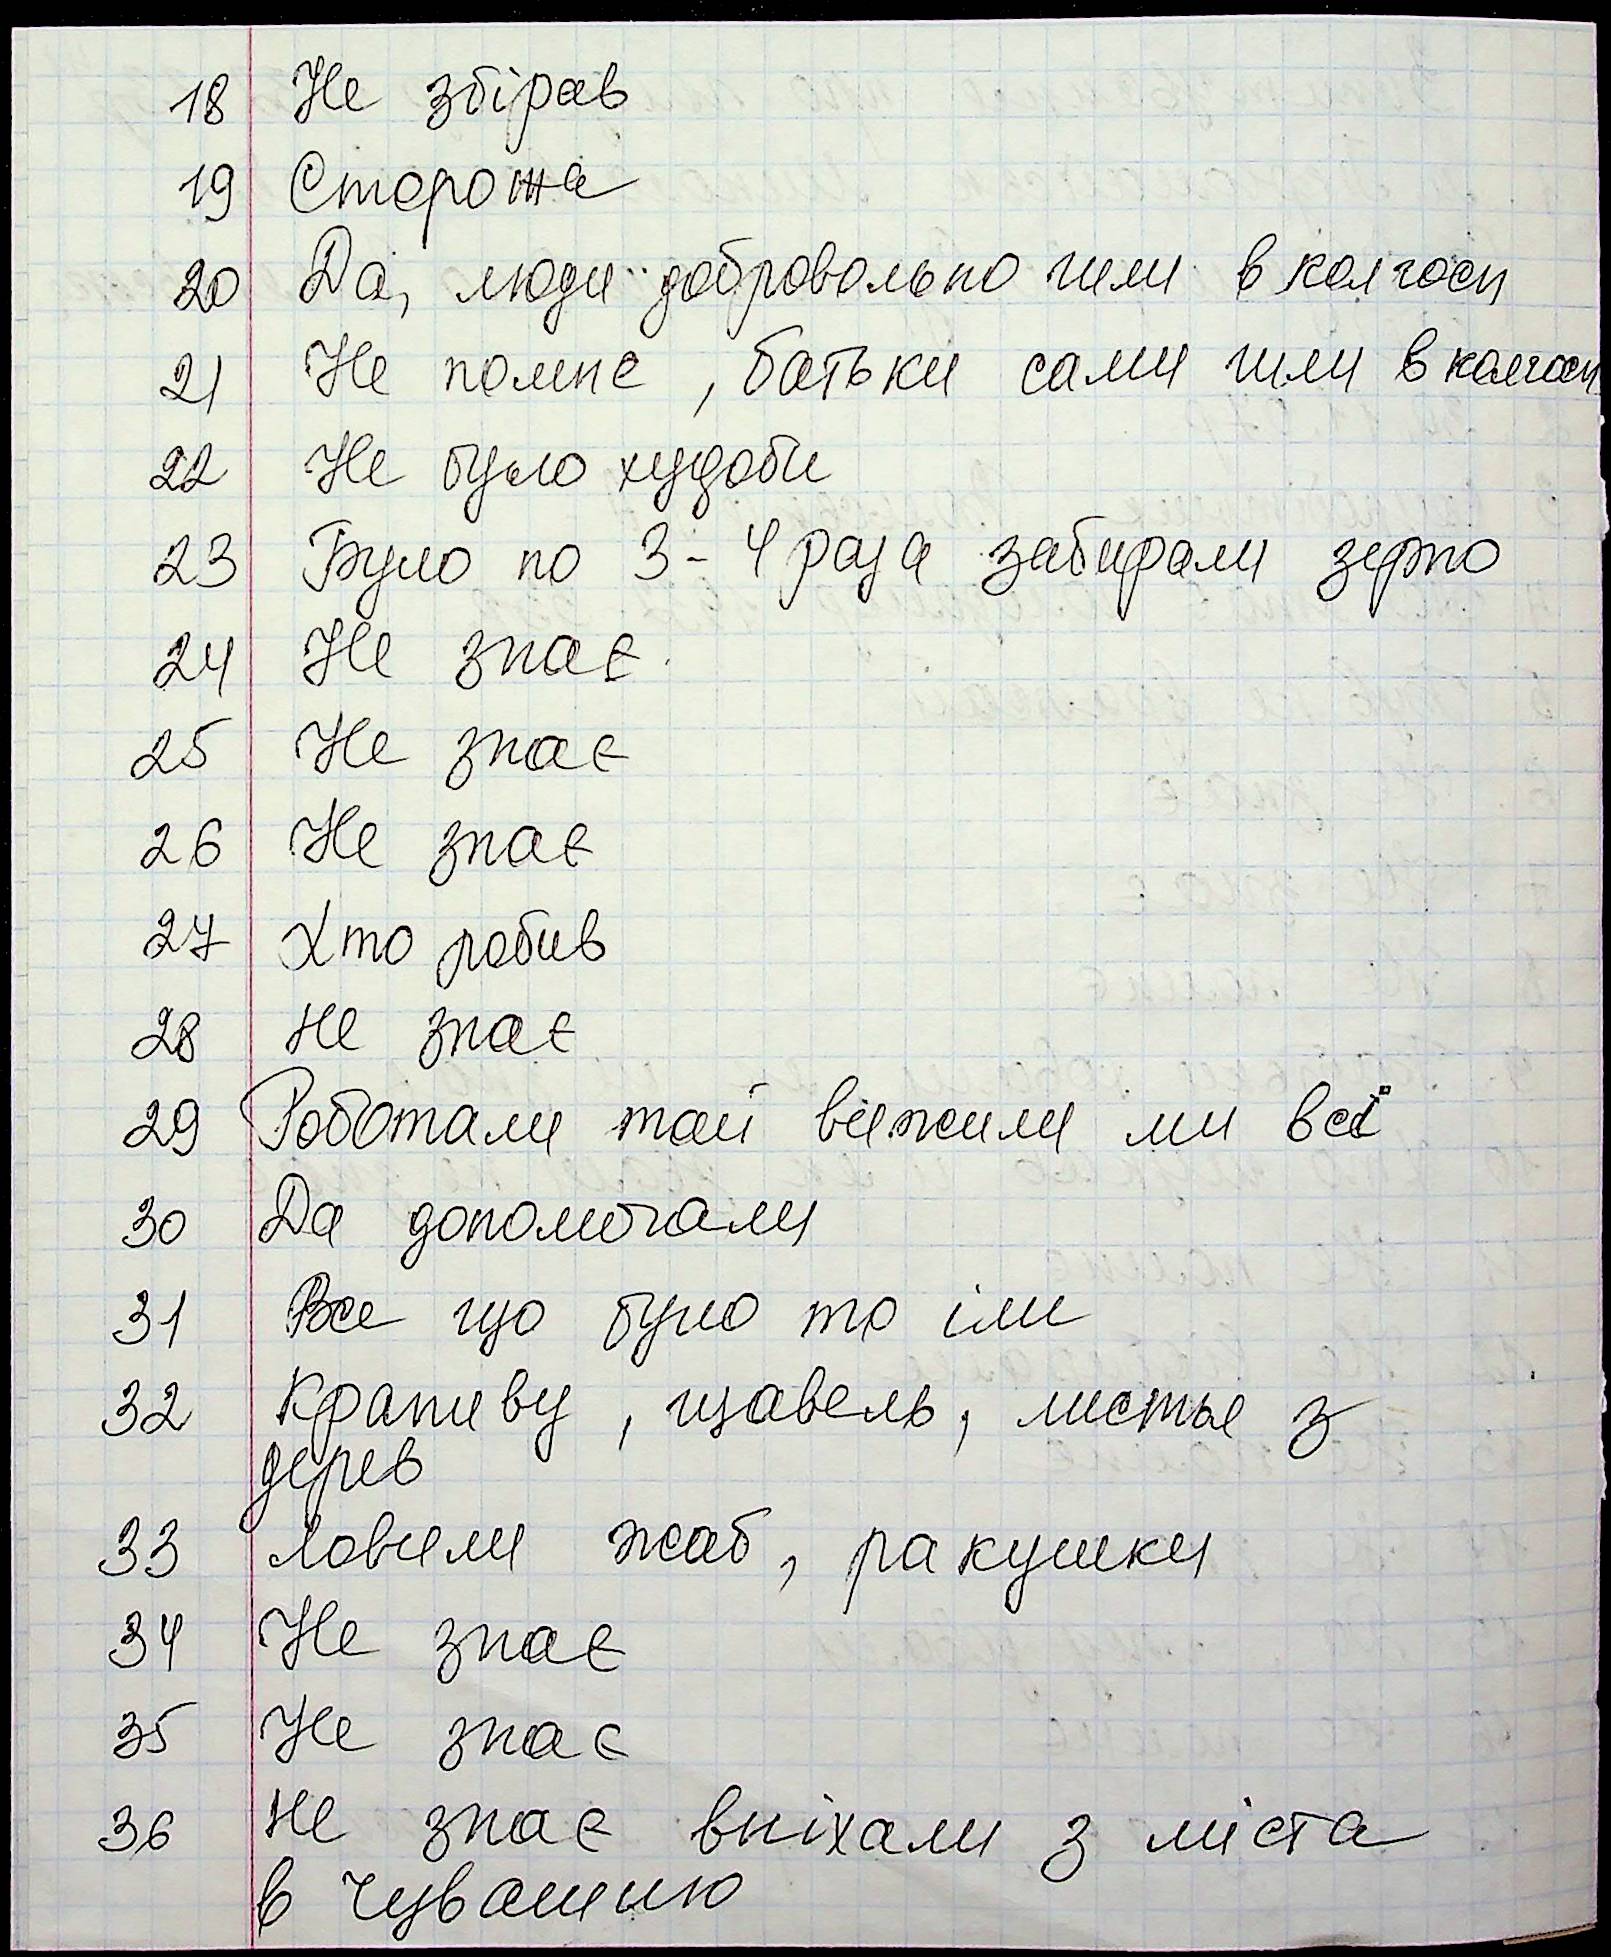 18 Не збірав
19 Сторожа
20 Да, люди добровольно шли в колгосп
21 Не помнє, батьки сами шли в колгосп
22 Не було худоби
23 Було по 3-4 раза забирали зерно
24 Не знає
25 Не знає
26 Не знає
27 Хто робив
28 Не знає
29 Роботали тай віжили ми всі
30 Да допомогали
31 Все що було то іли
32 Крапиву, щавель, листье з
дерев
33 Ловили жаб, ракушки
34 Не знає
35 Не знає
36 Не знає виіхали з міста
в Чувашию